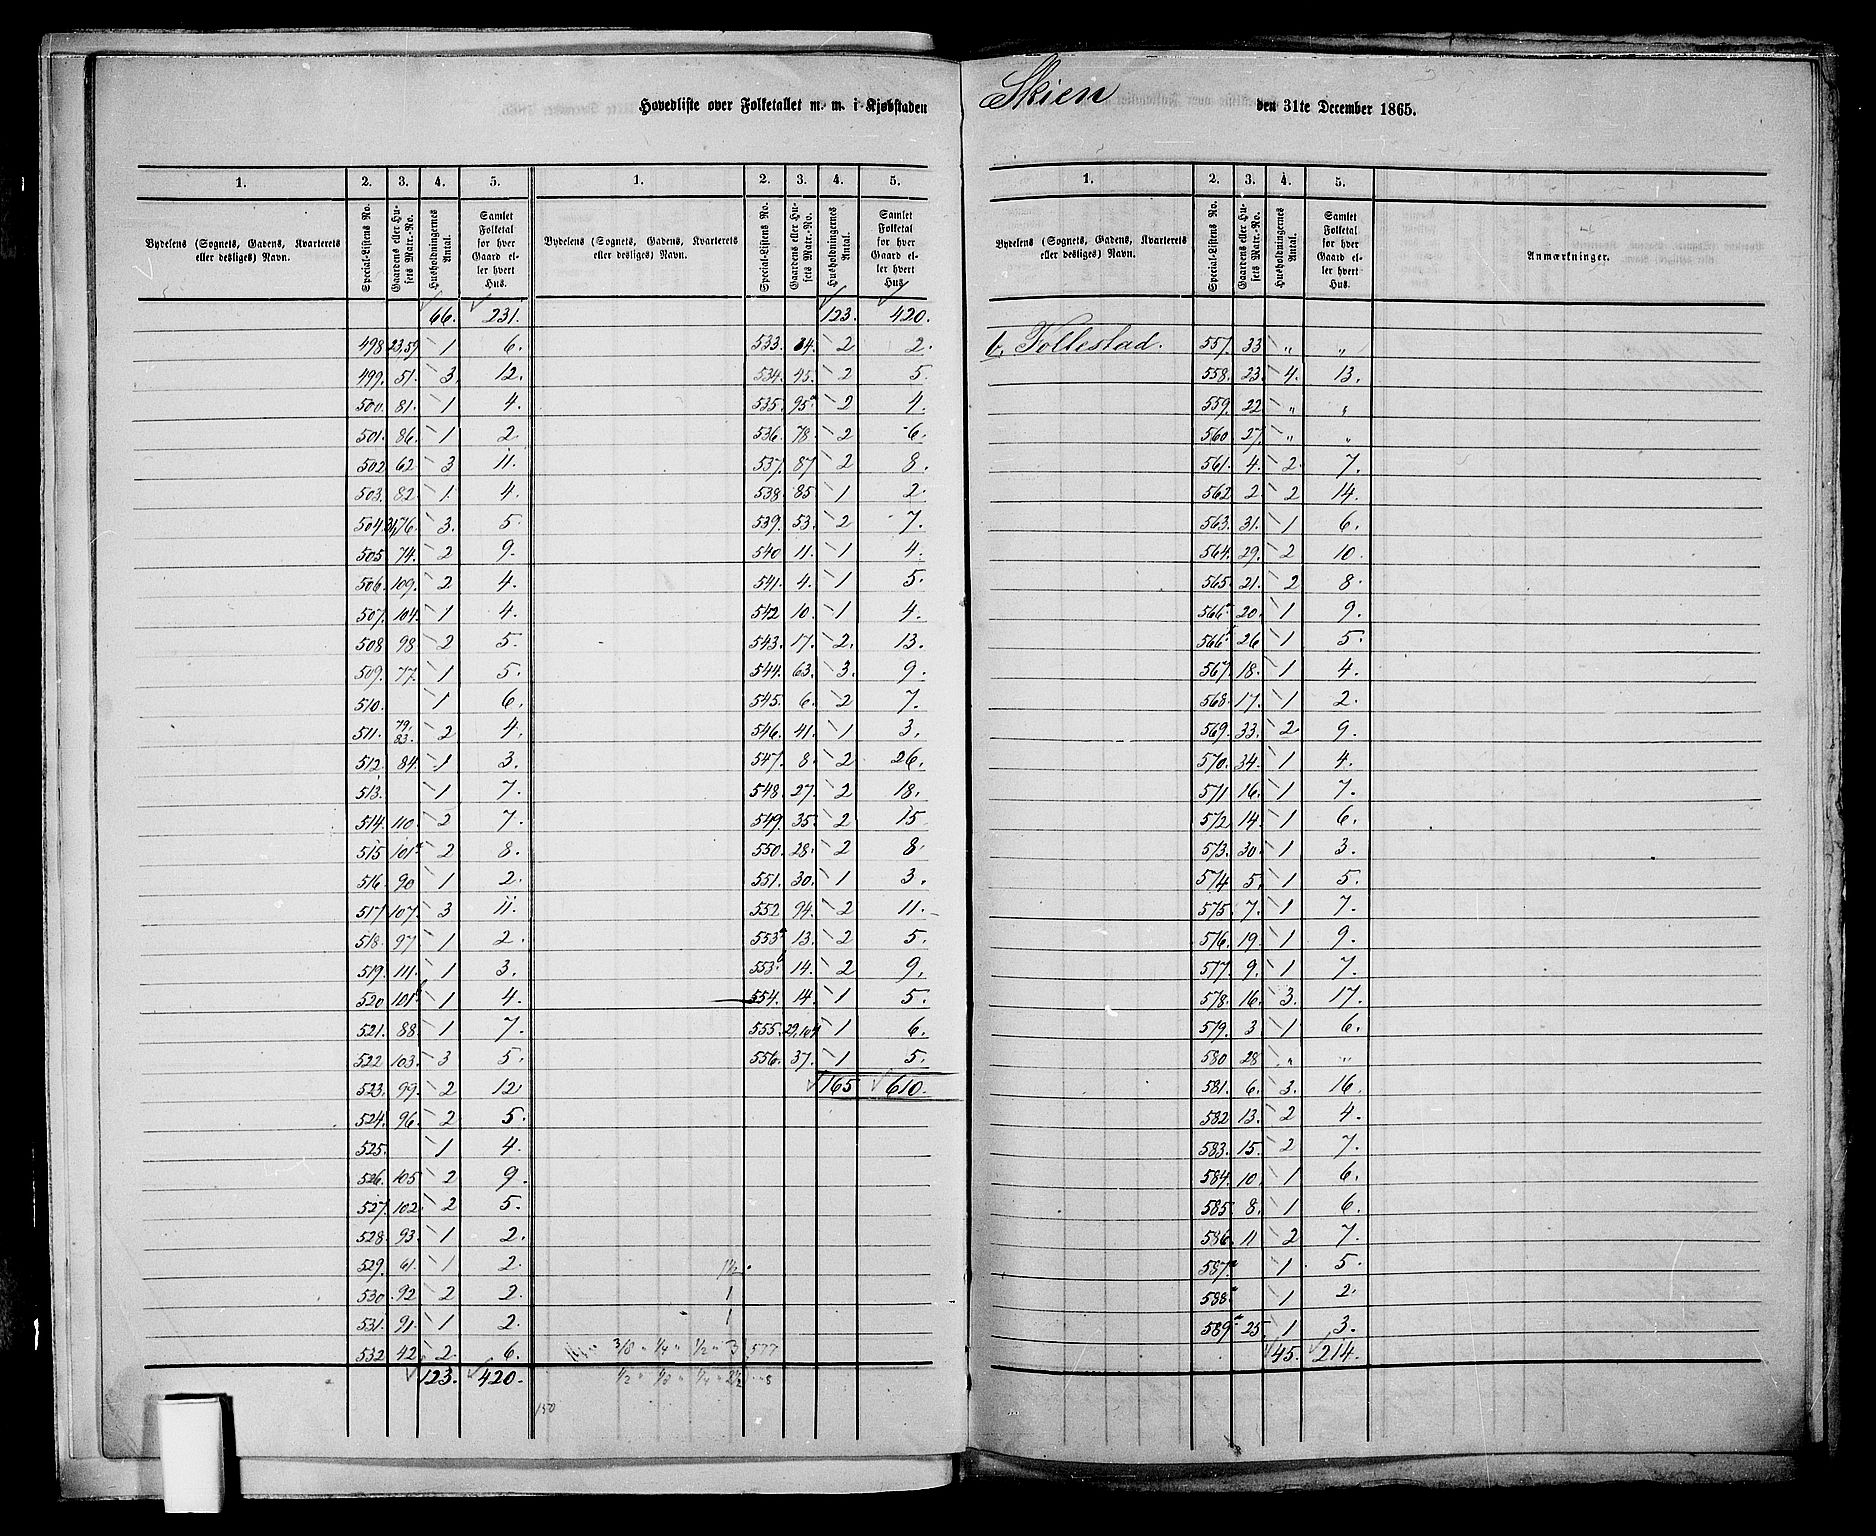 Hovedliste over Folketallet m. m. i Kjøbstaden Skien den 31te December 1865.
1. 2. 3. 4. 5. 1. 2. 3. 4. 5.
Bydelens (Sognets, Gadens, Kvarterets eller desliges) Navn. Special-Listens No. Gaardens eller Husets Matr.-No. Husholdningernes Antal. Samlet Folketal for hver Gaard eller hvert Hus.
66. 231.
498 23,59 1 6.
499. 51. 3. 12.
500. 81. 1 4.
501. 86. 1 2.
502 62. 3 11.
503. 82. 1. 4.
504. 31,76. 3. 5.
505 74. 2 9.
506. 109. 2 4.
507. 104. 1 4.
508 98 2 5.
509. 77. 1 5.
510. 1 6.
511. 79. 83. 2 4.
512. 84. 1 3.
513. 1 7.
514. 110. 2 7.
515 101a 2 8.
516. 90 1 2.
517 107. 3 11.
518. 97 1 2.
519. 111. 1 3.
520 101b 1 4.
521. 88. 1 7.
522 103. 3 5.
523. 99. 2 12
524. 96. 2 5.
525. 1 4.
526. 105 2 9.
527. 102. 2 5.
528. 93. 1 2.
529. 61. 1 2.
530. 92 2 2.
531. 91. 1 2.
532 42. 2. 6.
123. 420.
Bydelens (Sognets, Gadens, Kvarterets eller desliges) Navn. Special-Listens No. Gaardens eller Husets Matr.-No. Husholdningernes Antal. Samlet Folketal for hver Gaard eller hvert Hus.
123. 420.
533. 34. 2 2.
534. 45. 2 5.
535. 95a 2 4.
536. 78. 2 6.
537. 87 2 8.
538. 85. 1 2.
539. 53. 2 7.
540 11. 1 4.
541. 4. 1 5.
542 10. 1 4.
543. 17. 2. 13.
544. 63. 3. 9.
545. 6. 2 7.
546. 41. 1 3.
547. 8. 2 26.
548. 27. 2 18.
549. 35. 2 15
550. 28. 2 8.
551. 30. 1 3.
552 94. 2 11.
553a 13. 2 5.
553b 14. 2 9.
554. 14. 1 5.
555. 29,104 1 6.
556. 37. 1 5.
165 610.
1½.
1
1
3/8 " ¼ " ½ " 3 577
½ " 1/8 " ¼ " 2½
150
1. 2. 3. 4. 5.
Bydelens (Sognets, Gadens, Kvarterets eller desliges) Navn. Special-Listens No. Gaardens eller Husets Matr.-No. Husholdningernes Antal. Samlet Folketal for hver Gaard eller hvert Hus. Anmærkninger.
b. Follestad. 557. 33 " "
558. 23. 4. 13.
559. 22 " "
560 27. " "
561. 4. 2. 7.
562 2. 2 14.
563. 31. 1 6.
564. 29. 2 10.
565. 21. 2 8.
566a 20. 1 9.
566b 26 1 5.
567. 18. 1 4.
568 17. 1 2.
569. 33. 2 9.
570. 34. 1 4.
571 16. 1 7.
572 14. 1 6.
573. 30. 1 3.
574 5. 1 5.
575. 7. 1 7.
576. 19. 1 9.
577. 9. 1 7.
578. 16. 3. 17.
579. 3 1 6.
580 28 " "
581. 6. 3. 16.
582 13. 2 4.
583. 15. 2 7.
584. 10. 1 6.
585. 8. 1 6.
586. 11 2 7.
587a 1 5.
588a 1 2.
589a 25. 1 3.
45. 214.